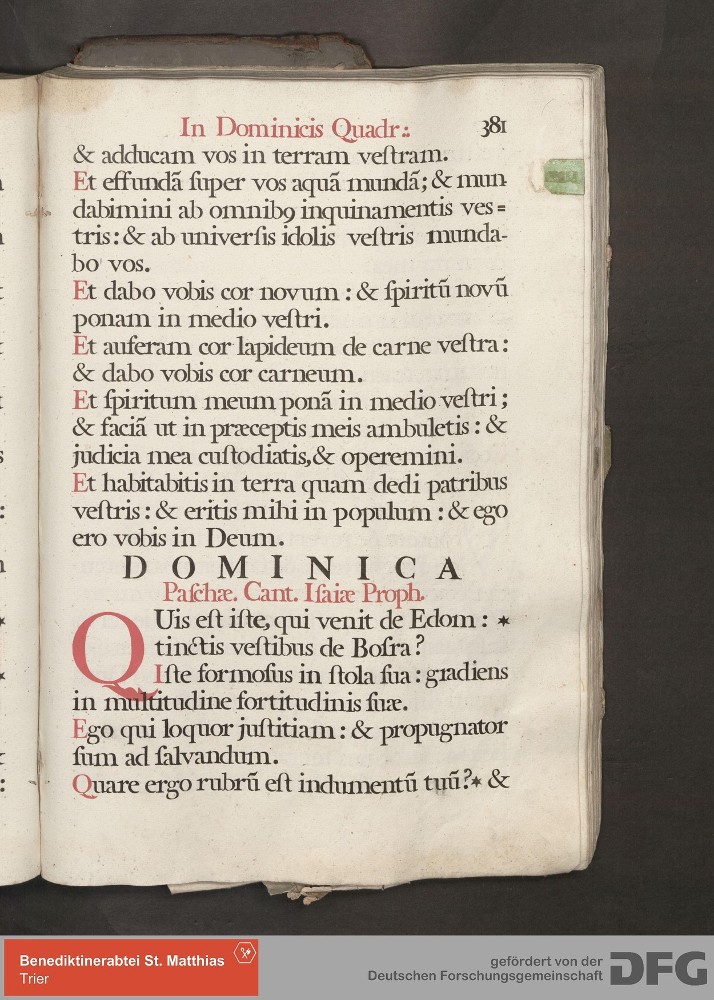 In Dominicis Quadr.: 381
& adducam vos in terram veſtram.
Et effundã ſuper vos aquã mundã; & mun-
dabimini ab omnibꝯ inquinamentis ves=
tris: & ab univerſis idolis veſtris munda-
bo vos.
Et dabo vobis cor novum: & ſpiritũ novũ
ponam in medio veſtri.
Et auferam cor lapideum de carne veſtra:
& dabo vobis cor carneum.
Et ſpiritum meum ponã in medio veſtri;
& faciã ut in præceptis meis ambuletis: &
judicia mea cuſtodiatis, & operemini.
Et habitabitis in terra quam dedi patribus
veſtris: & eritis mihi in populum: & ego
ero vobis in Deum.
DOMINICA
Paſchæ. Cant. Iſaiæ Proph.
QUis eſt iſte, qui venit de Edom: *
tinctis veſtibus de Boſra?
Iſte formoſus in ſtola ſua: gradiens
in multitudine fortitudinis ſuæ.
Ego qui loquor juſtitiam: & propugnator
ſum ad ſalvandum.
Quare ergo rubrũ eſt indumentũ tuũ? * &
Benediktinerabtei St. Matthias
Trier
gefördert von der
Deutschen Forschungsgemeinschaft
DFG